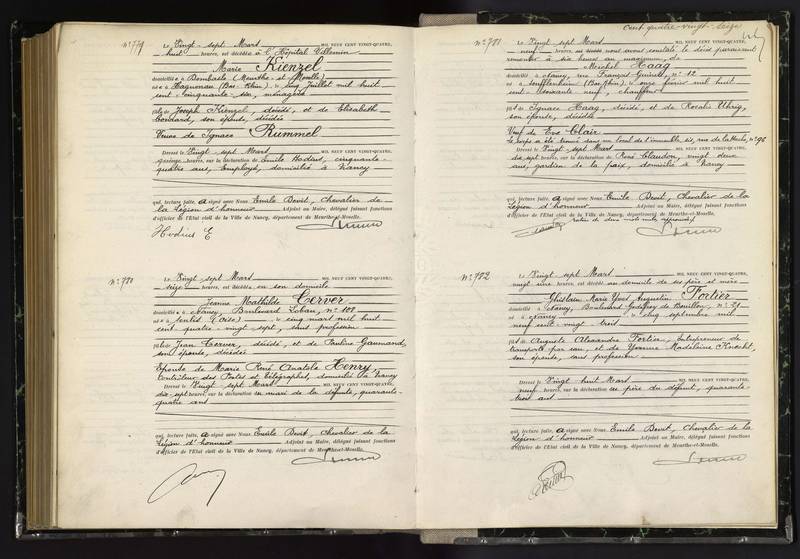 Cent quatre-vingt-seize
N° 779
Le Vingt-sept Mars MIL NEUF CENT VINGT-QUATRE,
huit heures, est décédée à l'Hôpital Villemin
Marie Kienzel
domiciliée à Bombasle (Meurthe-et-Moselle)
née à Haguenau (Bas-Rhin) le cinq Juillet mil huit
cent cinquante-six, ménagère
fille de Joseph Kienzel, décédé, et de Elisabeth
son épouse, décédée
Veuve de Ignace Rummel
Dressé le Vingt-sept Mars MIL NEUF CENT VINGT-QUATRE,
quinze heures, sur la déclaration de Emile Hodard, cinquante-
quatre ans, Employé, domicilié à Nancy
qui, lecture faite, a signé avec Nous Emile Bevit, Chevalier de
la Légion d'honneur Adjoint au Maire, délégué faisant fonctions
d'officier de l'Etat civil de la Ville de Nancy, département de Meurthe-et-Moselle.
N° 780
Le Vingt-sept Mars MIL NEUF CENT VINGT-QUATRE,
seize heures, est décédée en son domicile
Jeanne Mathilde Cerver
domiciliée à Nancy, Boulevard Lobau, n° 108
née à Senlis (Oise) le cinq mars mil huit
cent quatre-vingt sept, sans profession
fille de Jean Cerver, décédé, et de Pauline
son épouse, décédée
Epouse de Marie René Anatole Henry,
Contrôleur des Postes et Télégraphes, domicilié à Nancy
Dressé le Vingt sept Mars MIL NEUF CENT VINGT-QUATRE,
dix-sept heures, sur la déclaration du mari de la défunte, quarante-
quatre ans
qui, lecture faite, a signé avec Nous Emile Bevit, Chevalier de la
Légion d'honneur Adjoint au Maire, délégué faisant fonctions
d'officier de l'Etat civil de la Ville de Nancy, département de Meurthe-et-Moselle.
N° 781
Le Vingt-sept Mars MIL NEUF CENT VINGT-QUATRE,
neuf heures, nous avons constaté le décès paraissant
remonter à six heures au maximum, de
Michel Haag
domicilié à Nancy, rue François Guinet, n° 12
né à Soufflenheim (Bas-Rhin) le février mil huit
cent soixante neuf, chauffeur
fils de Ignace Haag, décédé, et de Rosalie Uhrig,
son épouse, décédée
Veuf de Eve Clair
Le corps a été trouvé dans un local de l'immeuble sis, rue de n° 96
Dressé le Vingt-sept Mars MIL NEUF CENT VINGT-QUATRE,
dix sept heures, sur la déclaration de René Claudon, vingt deux
ans, gardien de la paix, domicilié à Nancy
qui, lecture faite, a signé avec Nous Emile Bevit, Chevalier de la
Légion d'honneur Adjoint au Maire, délégué faisant fonctions
d'officier de l'Etat civil de la Ville de Nancy, département de Meurthe-et-Moselle.
de deux mots nuls
N° 782
Le Vingt-sept Mars MIL NEUF CENT VINGT-QUATRE,
vingt une heures, est décédé au domicile de ses père et mère
Ghislain Marie Yves Augustin Fortier
domicilié à Nancy, Boulevard Godefroy de Bouillon, n° 21
né à Nancy le cinq septembre mil
neuf cent vingt trois
fils de Auguste Alexandre Fortier, Entrepreneur de
transports et de Yvonne Madeleine
son épouse, sans profession
Dressé le Vingt huit Mars MIL NEUF CENT VINGT-QUATRE,
neuf heures, sur la déclaration du père du défunt, quarante-
trois ans
qui, lecture faite, a signé avec Nous Emile Bevit, Chevalier de la
Légion d'honneur Adjoint au Maire, délégué faisant fonctions
d'officier de l'Etat civil de la Ville de Nancy, département de Meurthe-et-Moselle.